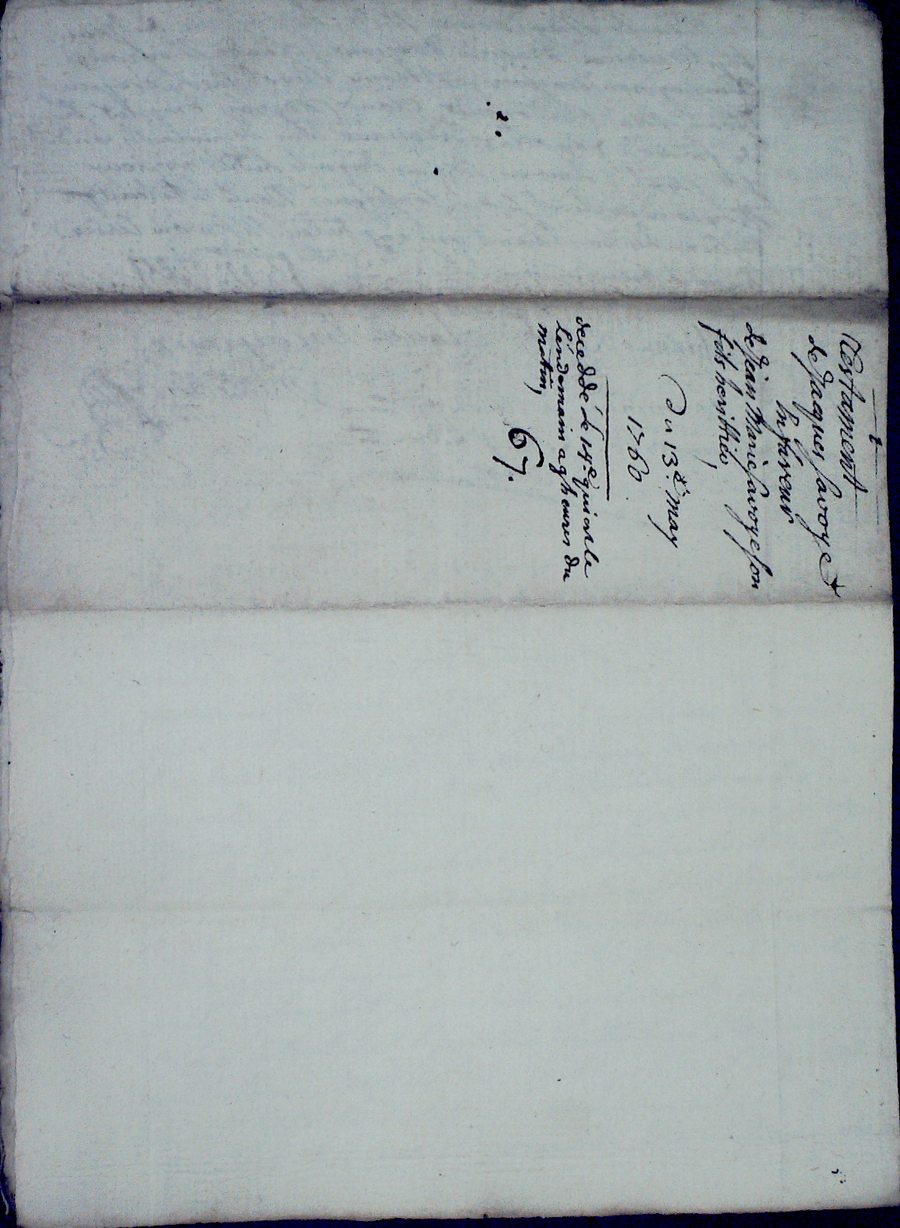 Testament
de Jaques Savoye
En faveur
de Jean Marie Savoye son
fils heritier,
Du 13.e may
1766.
decedde le 14.e qui est le
lendemain a 9 heures du
matin,
67.
2.